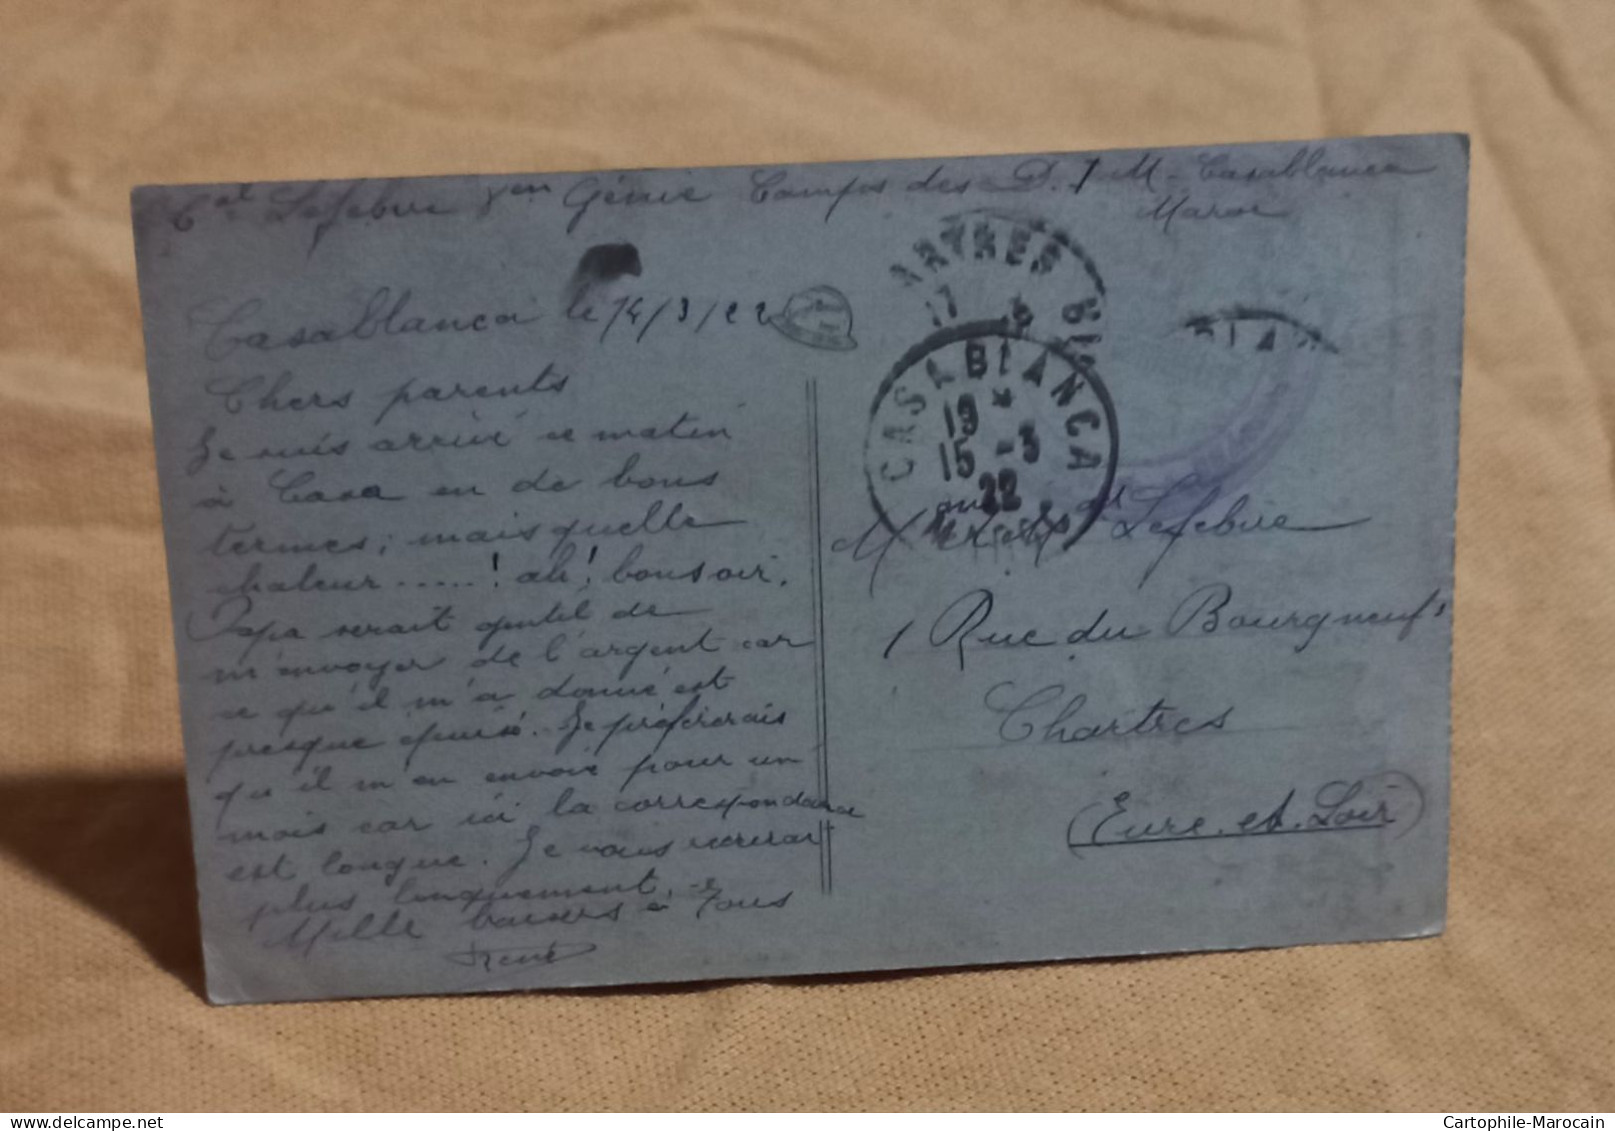 Cal Lefebvre Génie Camps des D. I. M. Casablanca
Maroc
Casablanca le 14/3/22
Chers parents
Je suis arrivé ce matin
à Casa en de bons
termes; mais quelle
chaleur.....! ah! bonsoir.
Papa serait gentil de
m'envoyer de l'argent car
ce qu'il m'a donné est
presque épuisé. Je préférerais
qu'il m'en envoie pour un
mois car ici la correspondance
est longue. Je vous écrirai
plus longuement.
Mille baisers à tous
René
CASABLANCA
19 *
15 -3
22
Lefebvre
1 Rue du Bourgneuf
Chartres
(Eure-et-Loir)
Cartophile-Marocain